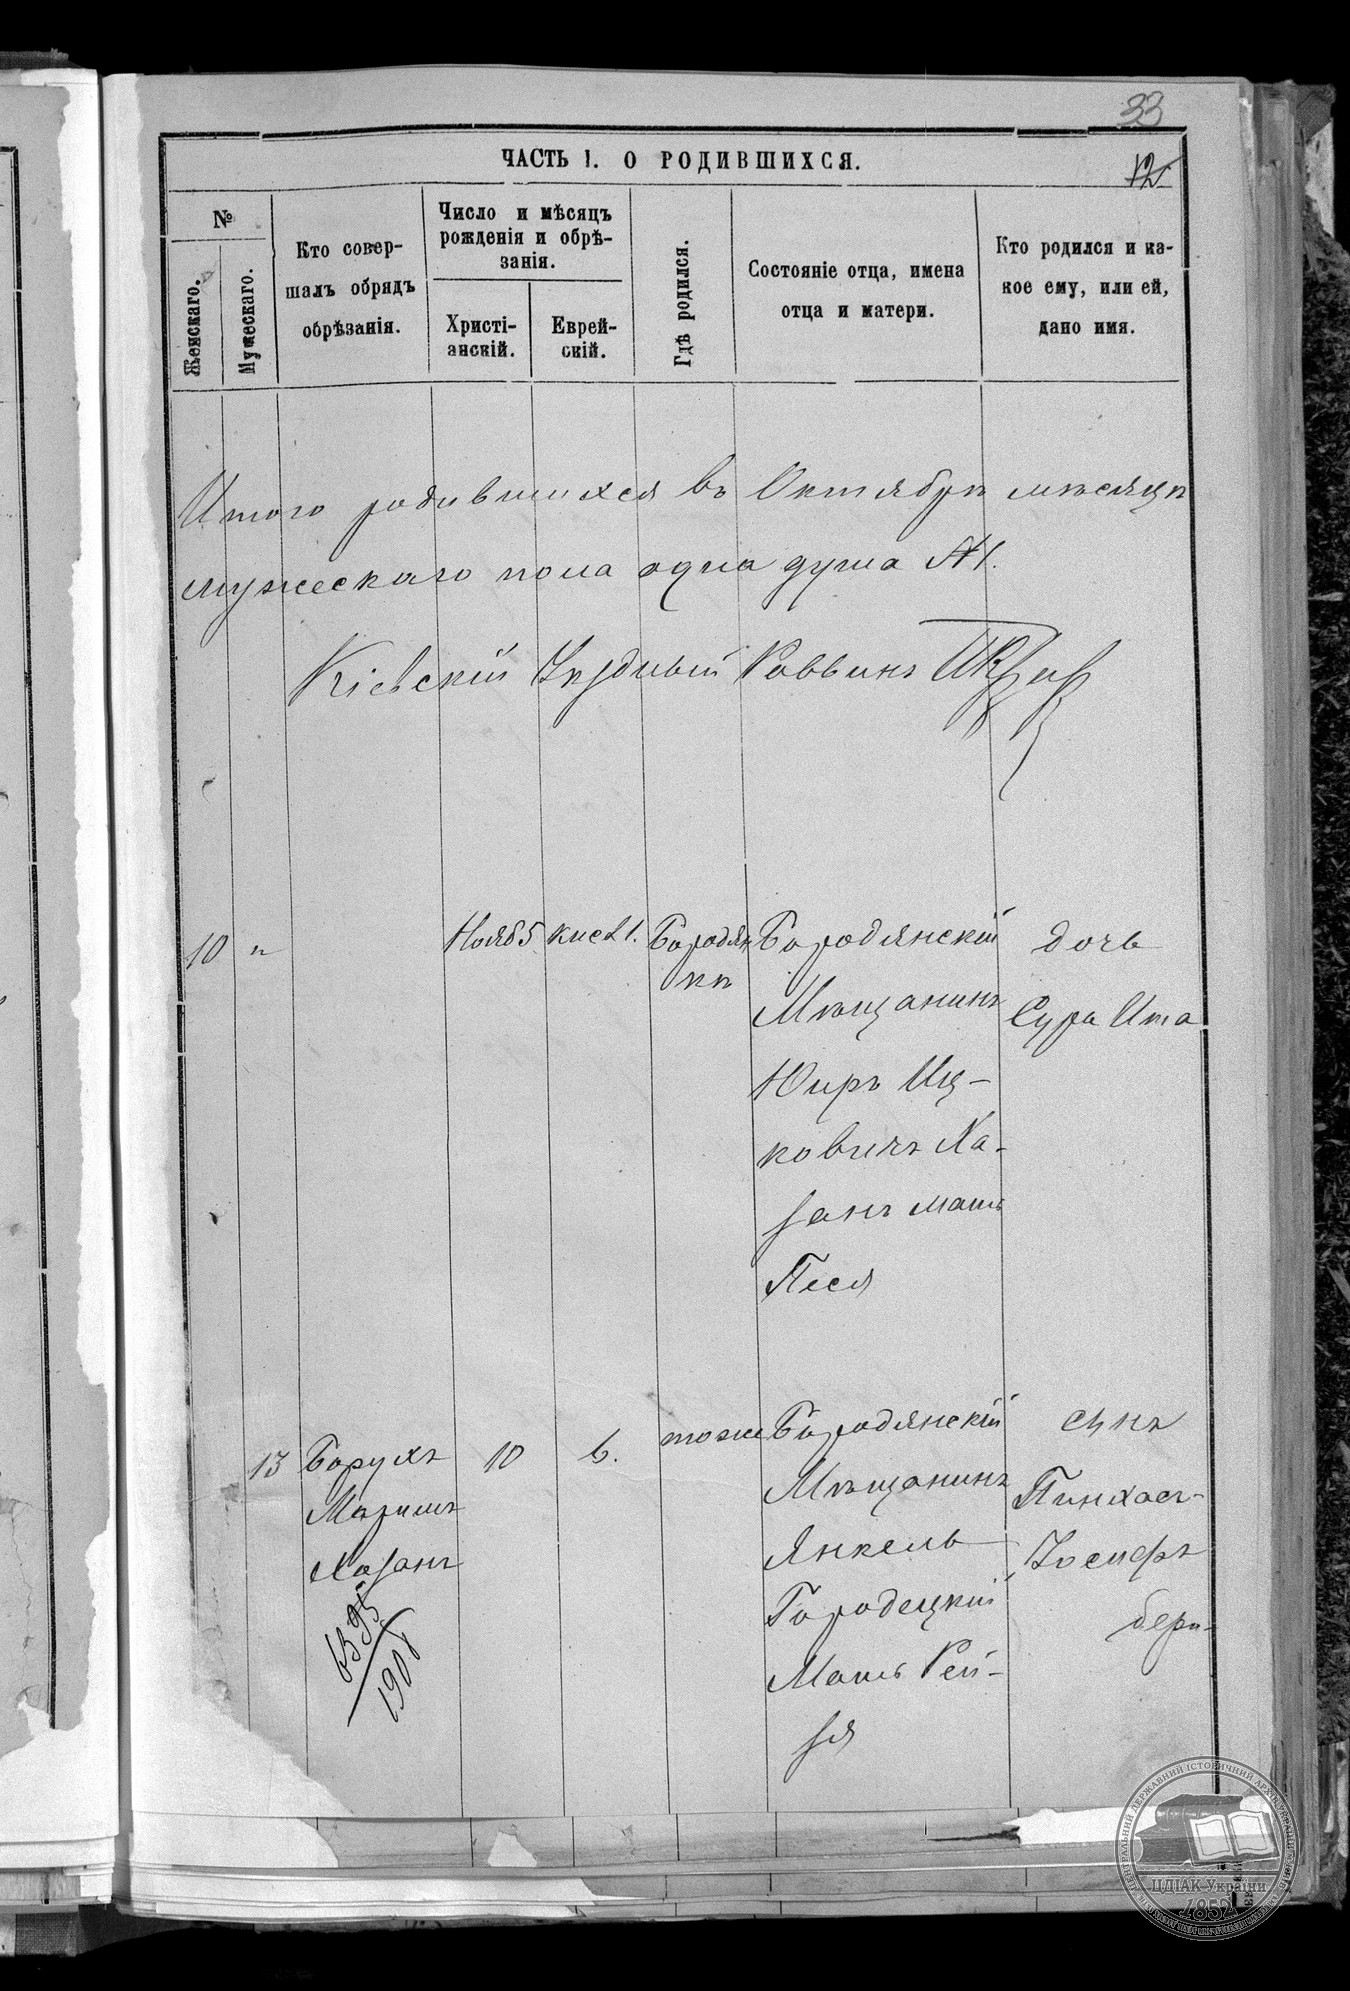 33
ЧАСТЬ I. О РОДИВШИХСЯ.
12
№
Женскаго.
Мужескаго.
Кто совер-
шалъ обрядъ
обрѣзанія.
Число и мѣсяцъ
рожденія и обрѣ-
занія.
Христі-
анскій.
Еврей-
скій.
Гдѣ родился.
Состояніе отца, имена
отца и матери.
Кто родился и ка-
кое ему, или ей,
дано имя.
Итого родившихся въ Октябрѣ мѣсяцѣ
мужескаго пола одна душа №1.
Кіевскій Уѣздный Раввинъ
10
"
Нояб 5
кисл 1.
Бородян
кѣ
Бородянскій
Мѣщанинъ
Юиръ Иц-
ковичъ Ха-
занъ мать
Песя
дочь
Сура Ита
13
Борухъ
Мариишъ
Хазанъ
6395
1908
10
6.
тоже
Бородянскій
Мѣщанинъ
Янкель
Городецкій
Мать Рей-
зя
сынъ
Пинхасъ-
Іосифъ
беръ-
ЦЕНТРАЛЬНИЙ ДЕРЖАВНИЙ ІСТОРИЧНИЙ АРХІВ УКРАЇНИ
ЦДІАК України
1852